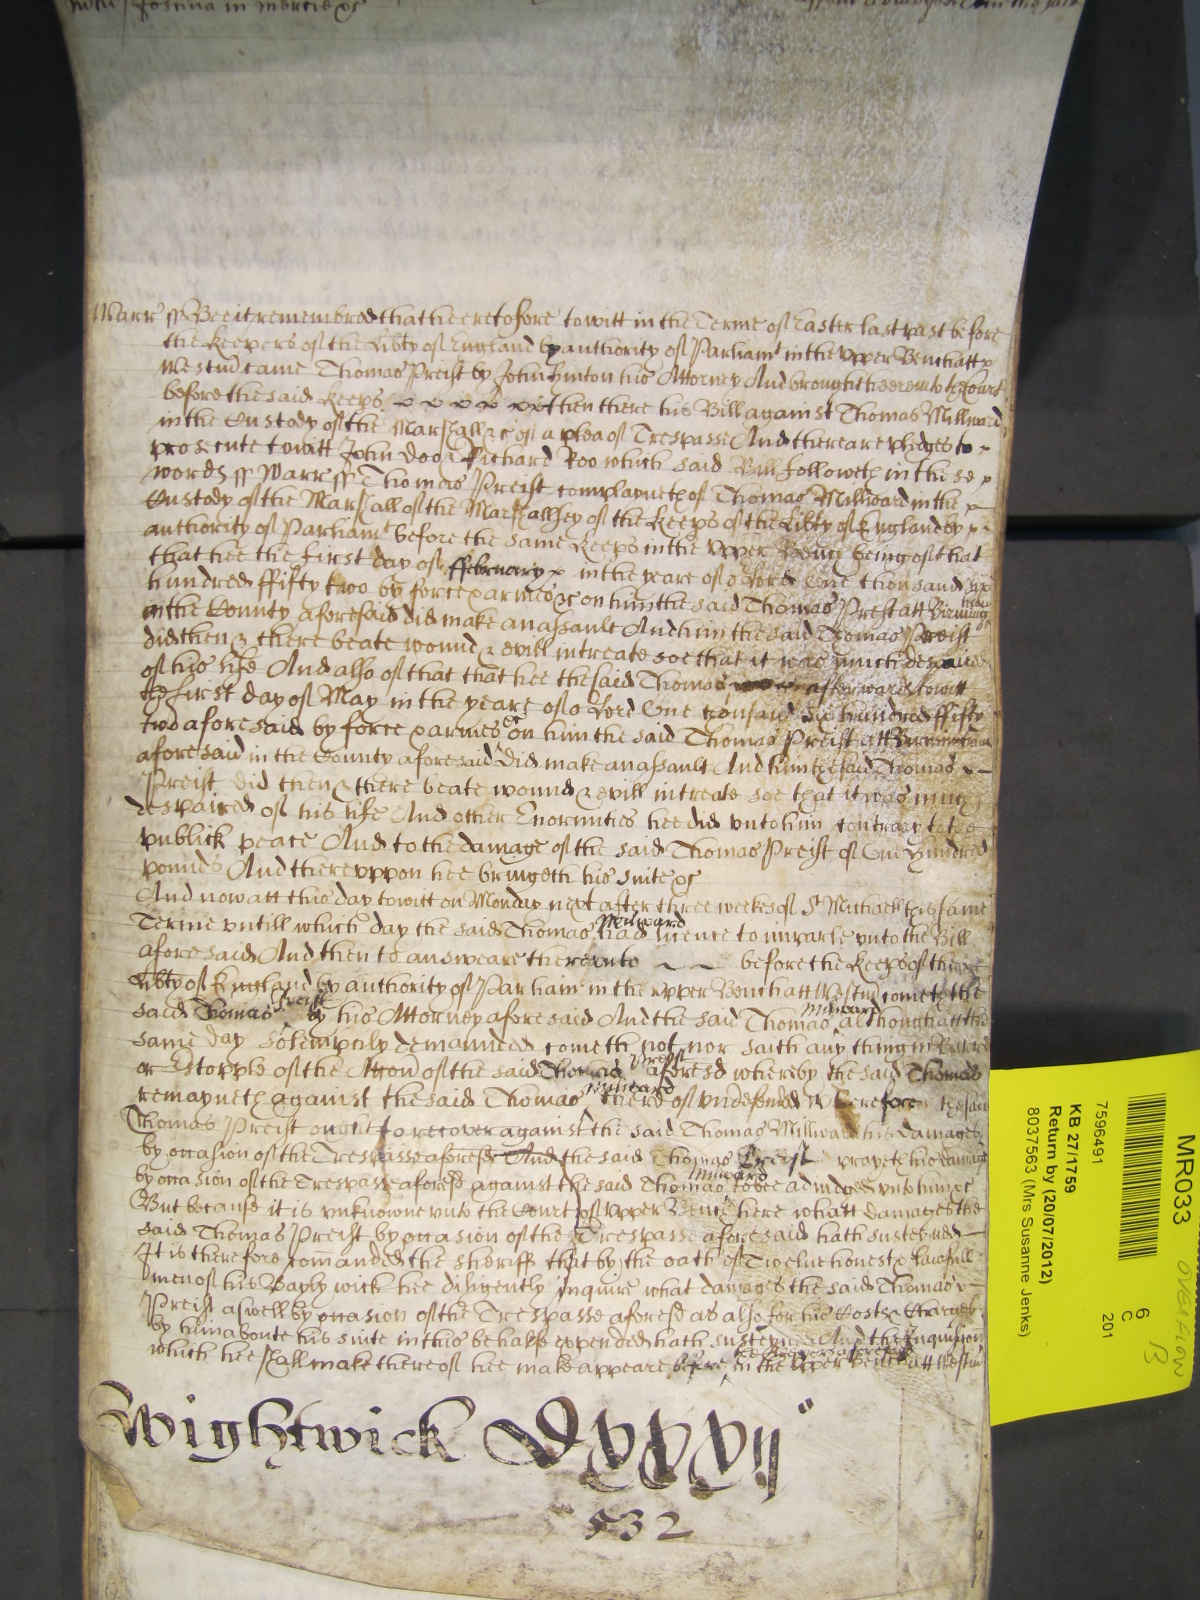 in mercie &c
Warr ss Bee it remembred that heeretofore to witt in the Terme of Easter last past before
the Keepers of the Libty of England by authority of Parliamt in the Upper Bench att
Westm came Thomas Preist by John Hinton his Attorney And brought heere into the Court
before the said Keeps x x x x x then there his Bill against Thomas Millward
in the Custody of the Marshall &c of a plea of Trespasse And there are pledges to
prosecute to witt John Doo & Richard Roo which said Bill followeth in these
words ss Warr ss Thomas Preist complayneth of Thomas Millward in the
Custody of the Marshall of the Marshallsey of the Keeps of the Libty of England by
authority of Parliamt before the same Keeps in the Upper Bench being of that
that hee the first day of ffebruary x in the yeare of o Lord One thousand six
hundred ffifty two by force & armes &c on him the said Thomas Preist att Birmingham
in the County aforesaid did make an assault And him the said Thomas Preist
did then & there beate wound & evill intreate soe that it was much despaired
of his life And also of that that hee the said Thomas afterwards to witt
the first day of May in the yeare of o Lord One thousand six hundred ffifty
two aforesaid by force & armes &c on him the said Thomas Preist att Birmingham
aforesaid in the County aforesaid did make an assault And him the said Thomas
Preist did then & there beate wound & evill intreate soe that it was much
despaired of his life And other Enormities hee did unto him contrary to the
publick peace And to the damage of the said Thomas Preist of One hundred
pounds And thereuppon hee bringeth his suite &c
And now att this day to witt on Monday next after three weekes of St Michaell this same
Terme untill which day the said Thomas Millward had licence to imparle unto the Bill
aforesaid And then to answeare thereunto before the Keeps of the
Libty of England by authority of Parliamt in the Upper Bench att Westm cometh the
said Thomas Preist by his Attorney aforesaid And the said Thomas Millward although att the
same day solempnly demaunded cometh not nor saith any thing in Barre
or Estopple of the Accon of the said Thomas Preist aforesd whereby the said Thomas
remayneth against the said Thomas Millward thereof undefended Wherefore the said
Thomas Preist ought to recover against the said Thomas Millward his damages
by occasion of the Trespasse aforesd And the said Thomas Preist prayeth his damages
by occasion of the Trespasse aforesd against the said Thomas Millward to bee adiudged unto him &c
But because it is unknowne unto the Court of Upper Bench here what damages the
said Thomas Preist by occasion of the Trespasse aforesaid hath susteyned
It is therefore comanded the Sheriff that by the oath of Twelve honest & lawfull
men of his Baylywick hee diligently inquire what damages the said Thomas
Preist aswell by occasion of the Trespasse aforesd as also for his Costs & Charges
by him aboute his suite in this behalfe expended hath susteyned And the Inquisicon
which hee shall make thereof hee make appeare before the Keepers aforesd in the Upper Bench att Westm
Wightwick Dxxxij
532
MR033
OVERFLOW
13
6
C
201
7596491
KB 27/1759
Return by (20/07/2012)
8037563 (Mrs Susanne Jenks)